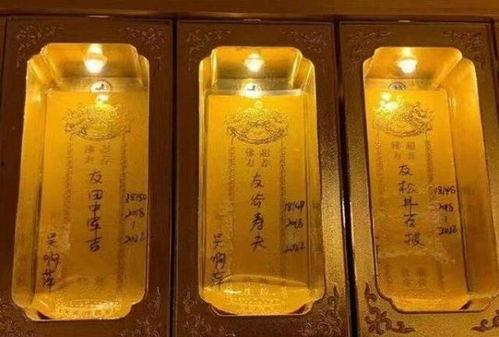 佛力超荐
友田中军吉
18150
2018
1
2022
吴啊萍
佛力超荐
友谷寿夫
18149
2018
2022
吴啊萍
佛力超荐
友松井石根
18148
2018
1
2022